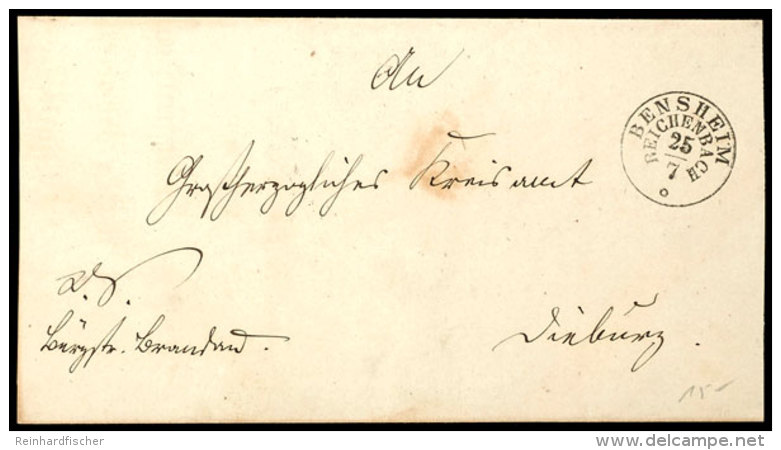 An
BENSHEIM
REICHENBACH
25
7
Großherzogliches Kreisamt
D. S.
Bürgstr. Brandau.
Dieburg.
15-
Reinhardfischer
www.delcampe.net